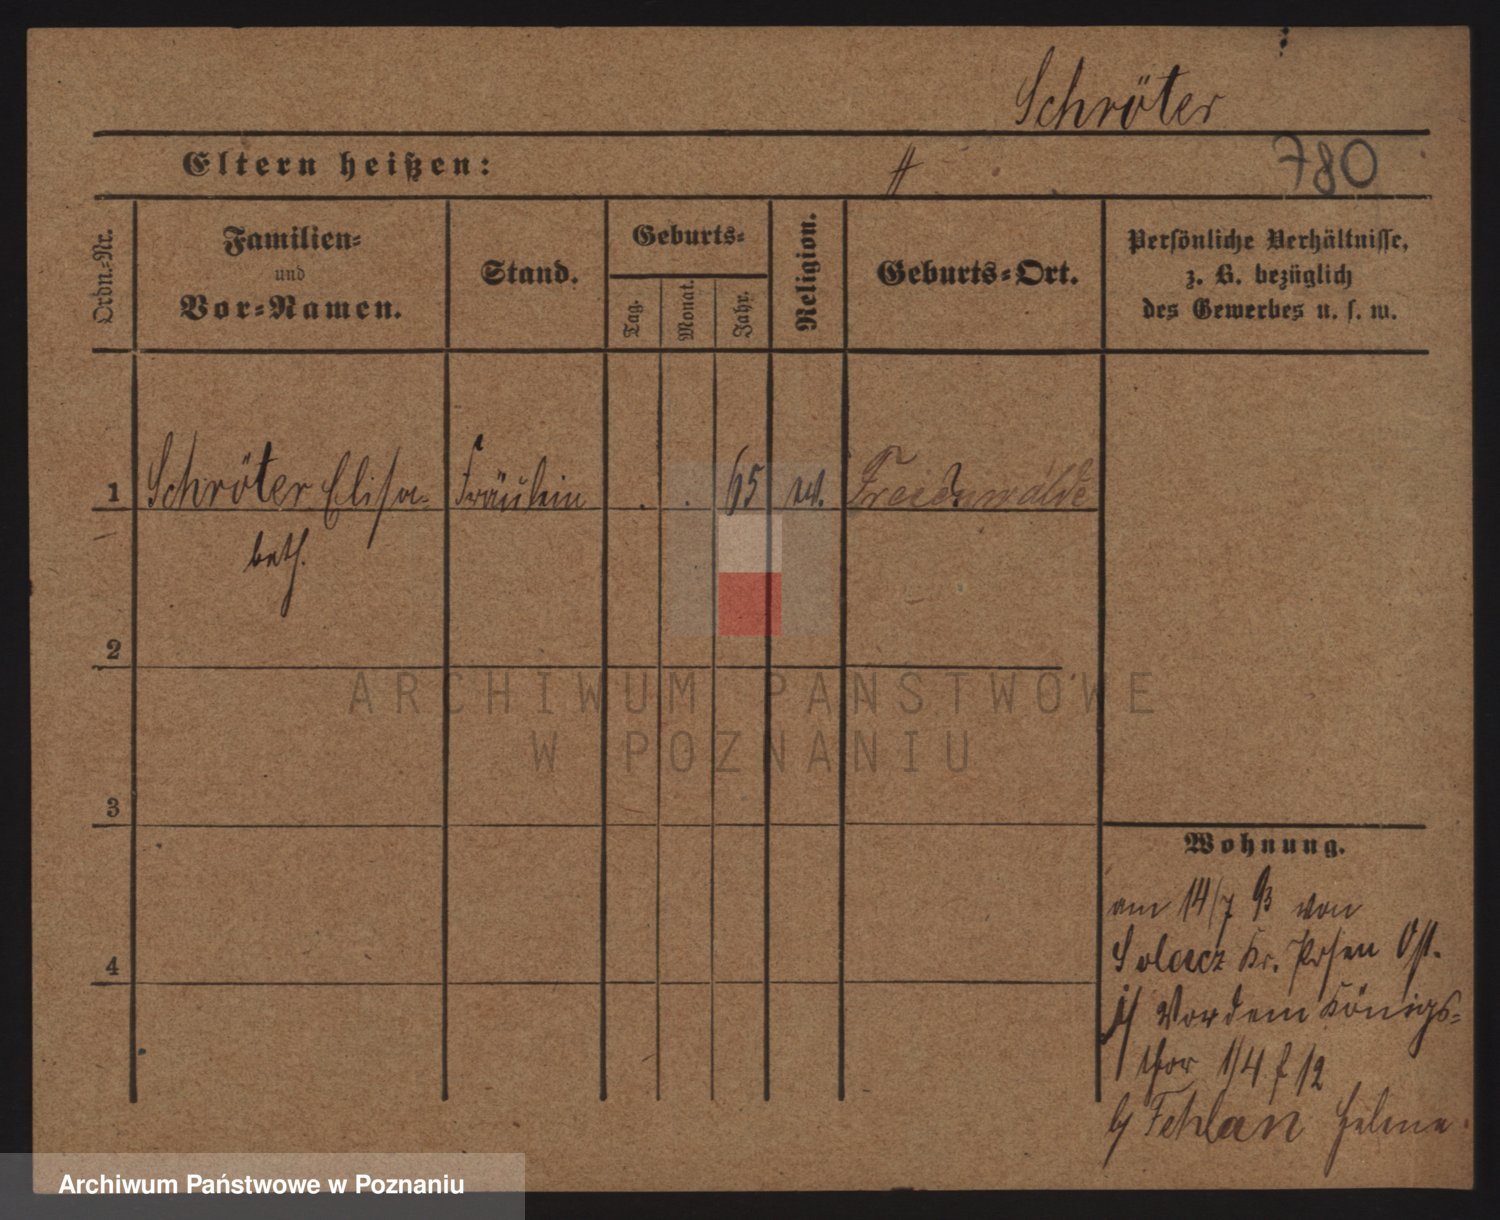 Schröter
Eltern heißen:
780
Ordn.-Nr.
Familien-
und
Vor-Namen.
Stand.
Geburts-
Tag.
Monat.
Jahr.
Religion.
Geburts-Ort.
Persönliche Verhältnisse,
z. B. bezüglich
des Gewerbes u. s. w.
1 Schröter Elisa- Fräulein . . 65 ev. Freienwalde
beth.
2
3
4
ARCHIWUM PAŃSTWOWE
W POZNANIU
Wohnung.
am 14/7 93 von
Solacz Kr. Posen Ost.
Vor dem Königs-
thor 1/4 f 12
Fehlan Helene
Archiwum Państwowe w Poznaniu